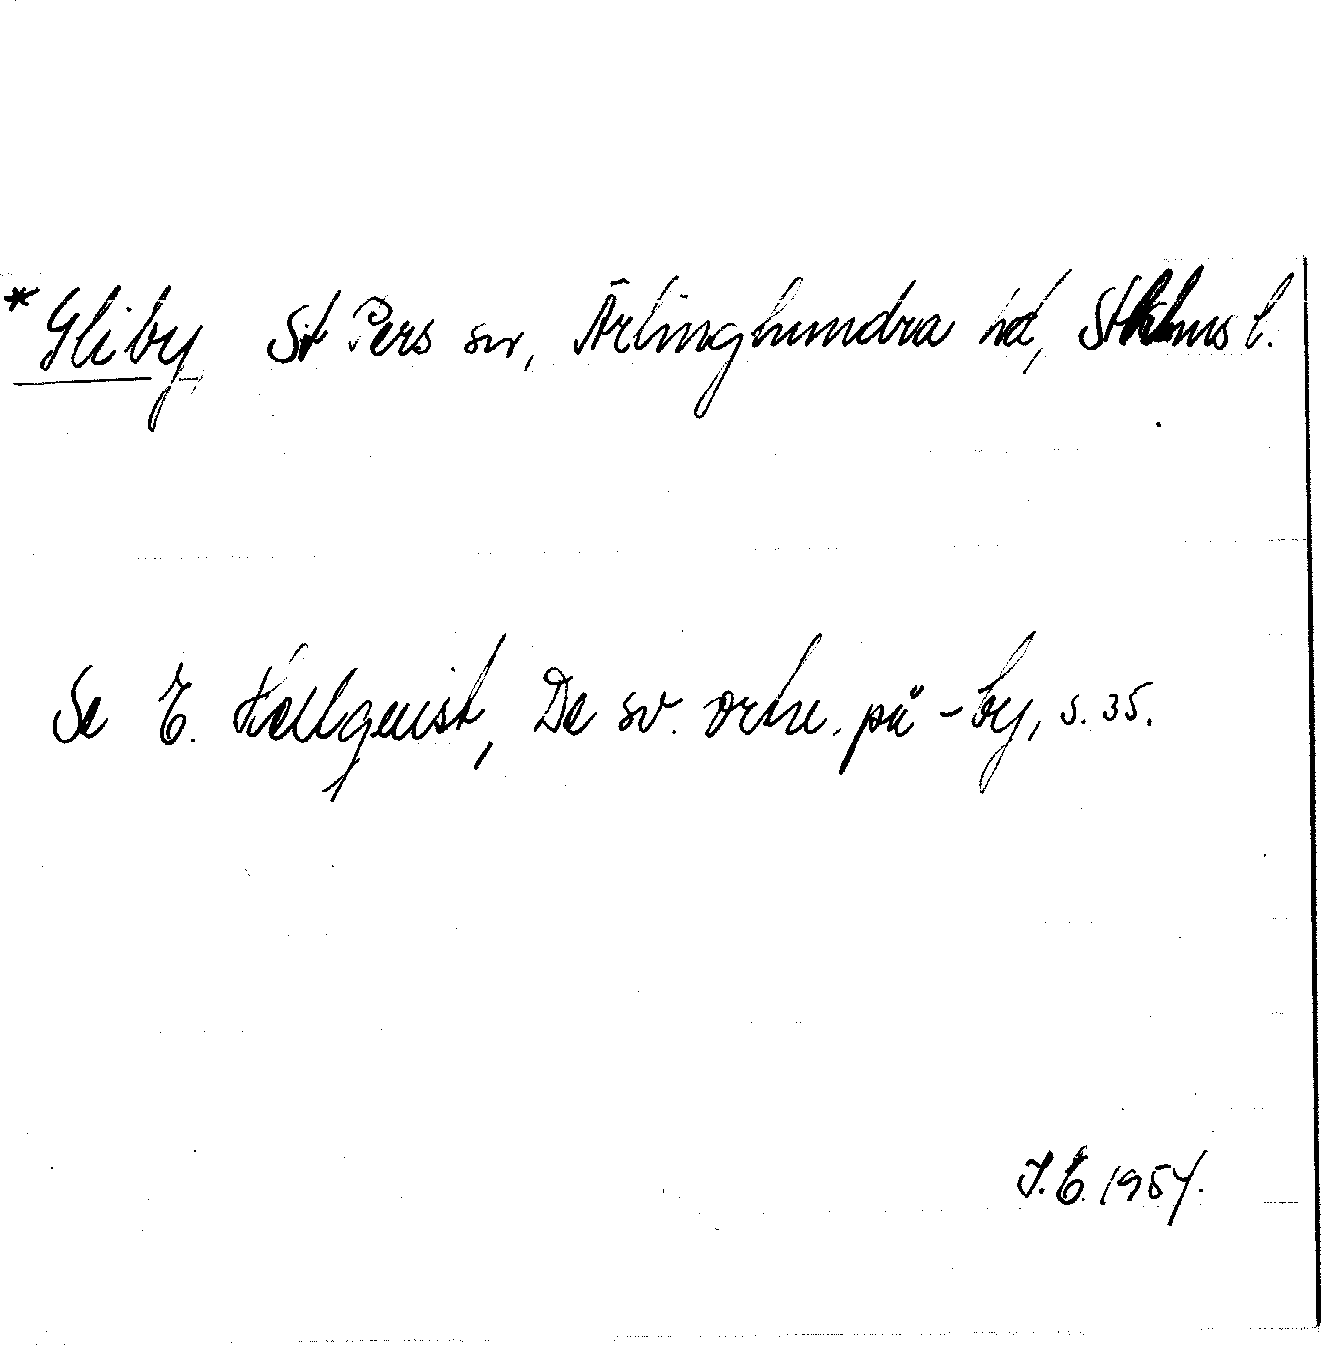 *Gliby St Pers sn, Ärlinghundra hd, Sthlms l.
Se E. Hellquist, De sv. ortn. på -by, s. 35.
I.E. 1957.